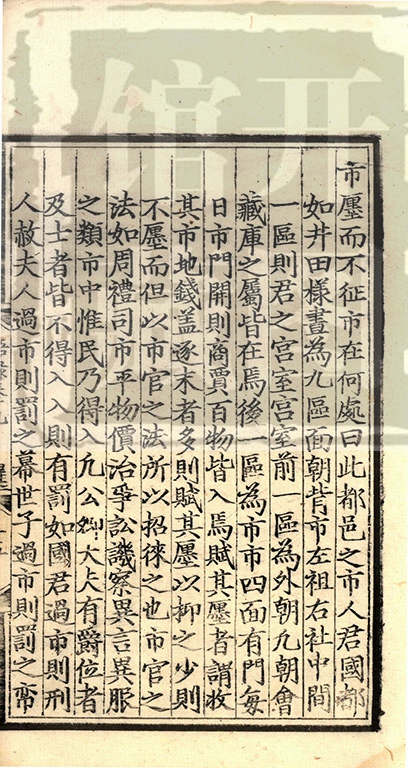 市廛而不征市在何處曰此都邑之市人君國都
如井田樣畫為九區面朝背市左祖右社中間
一區則君之宮室宮室前一區為外朝凡朝會
藏庫之屬皆在焉後一區為市市四面有門每
日市門開則商賈百物皆入焉賦其廛者謂收
其市地錢蓋逐末者多則賦其廛以抑之少則
不廛而但以市官之法所以招徠之也市官之
法如周禮司市平物價治爭訟譏察異言異服
之類市中惟民乃得入凡公卿大夫有爵位者
及士者皆不得入入則有罰如國君過市則刑
人赦夫人過市則罰之幕世子過市則罰之帟